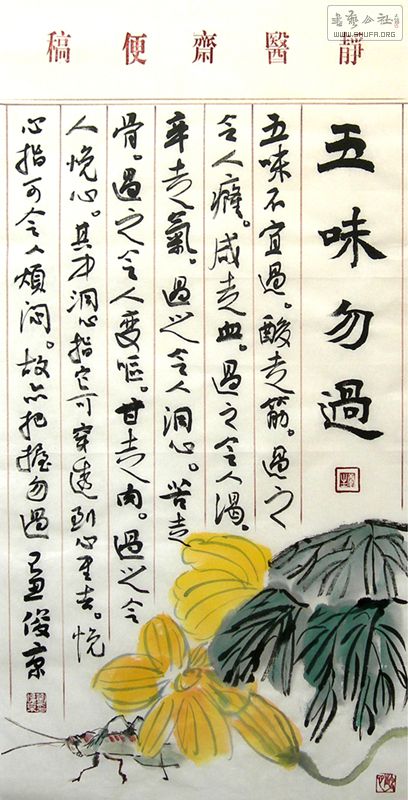 書藝公社
WWW.SHUFA.ORG
靜醫齋便稿
五味勿過
五味不宜過。酸走筋。過之
令人癃。咸走血。過之令人渴。
辛走氣。過之令人洞心。苦走
骨。過之令人變嘔。甘走肉。過之令
人悗心。其中洞心指它可穿透到心里去。悗
心指可令人煩悶。故亦把握勿過 孟俊京